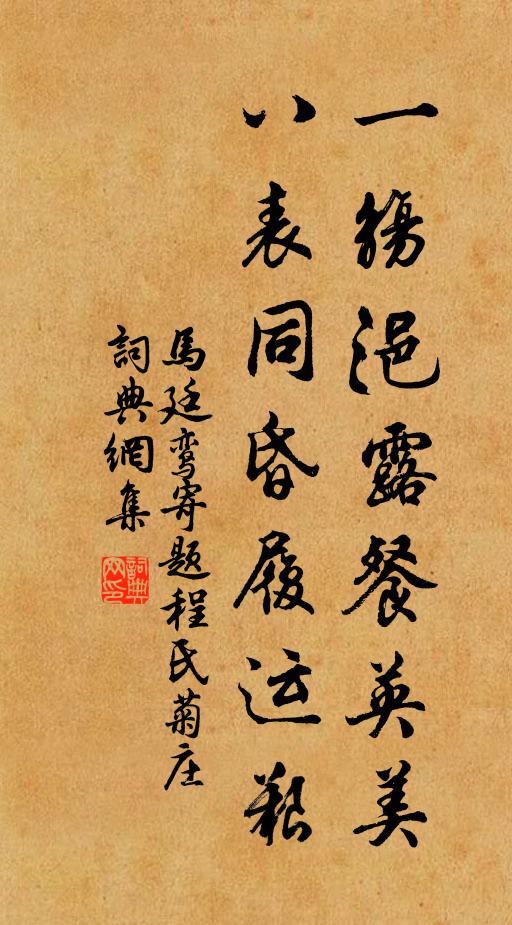 一觴浥露餐英美
八表同昏履运艱
馬廷鸾寄题程氏菊庄
詞典網集
詞典網印